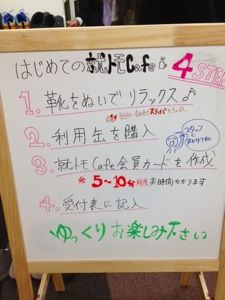 はじめての就トモCafeは4STEP
1.靴をぬいでリラックス♪
2.利用缶を購入
3.就トモCafe会員カードを作成
※5~10分程度お時間かかります
4.受付表に記入
ゆっくりお楽しみ下さい